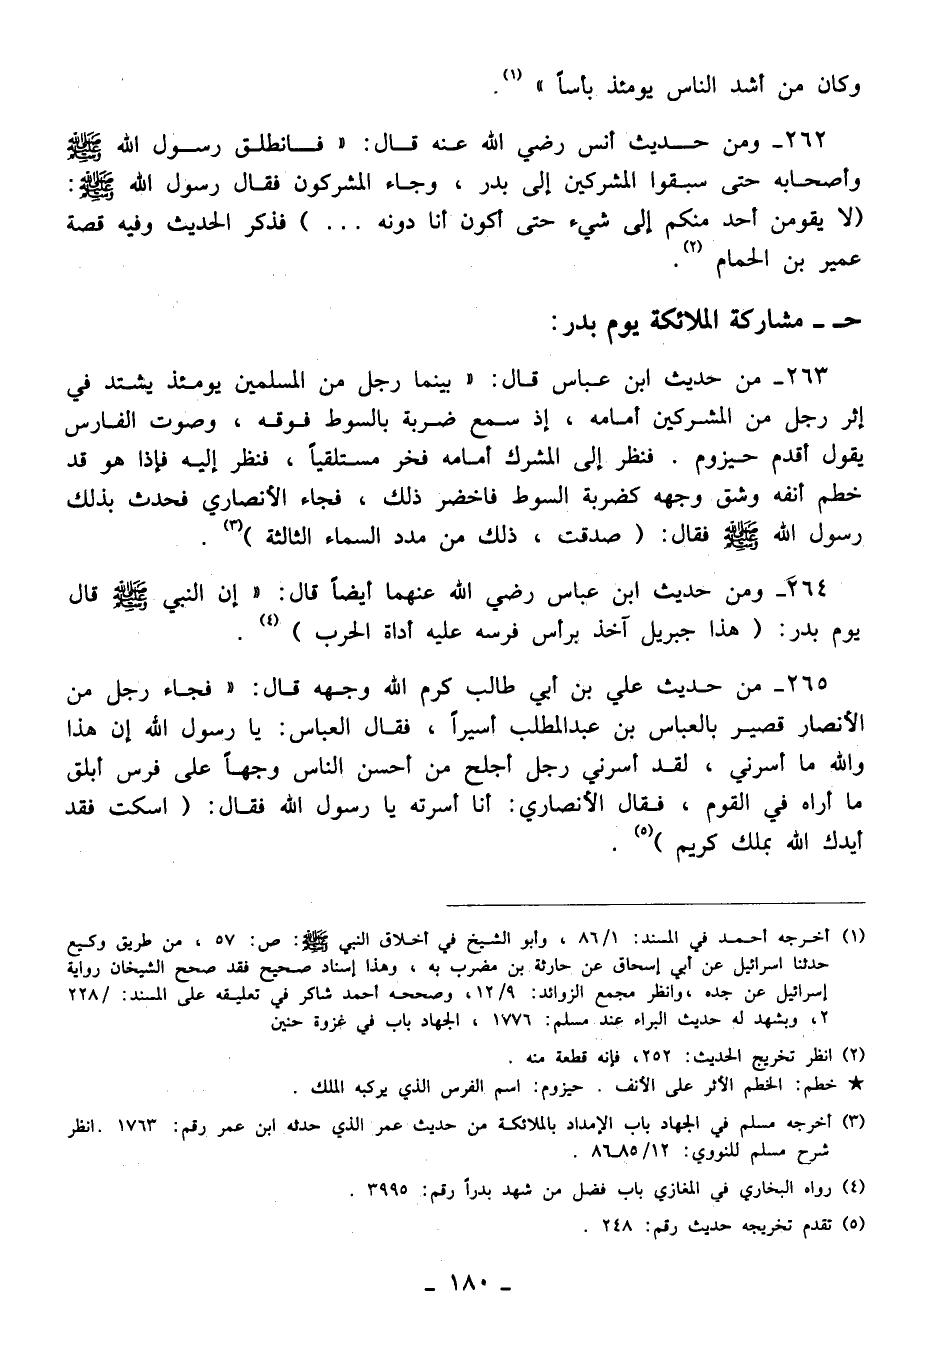 وكان من أشد الناس يومئذ بأساً » (١).
٢٦٢ـ ومن حـــديث أنس رضي الله عـنه قـال: « فــانطلـق رسـول الله ﷺ
وأصحابه حتى سبقوا المشركين إلى بدر ، وجاء المشركون فقال رسول الله ﷺ:
(لا يقومن أحد منكم إلى شيء حتى أكون أنا دونه ... ) فذكر الحديث وفيه قصة
عمير بن الحمام (٢).
حـ ـ مشاركة الملائكة يوم بدر:
٢٦٣ـ من حديث ابن عباس قال: « بينما رجل من المسلمين يومئذ يشتد في
إثر رجل من المشركين أمامه ، إذ سمع ضربة بالسوط فوقه ، وصوت الفارس
يقول أقدم حيزوم . فنظر إلى المشرك أمامه فخر مستلقياً ، فنظر إليه فإذا هو قد
خطم أنفه وشق وجهه كضربة السوط فاخضر ذلك ، فجاء الأنصاري فحدث بذلك
رسول الله ﷺ فقال: ( صدقت ، ذلك من مدد السماء الثالثة )(٣) .
٢٦٤ـ ومن حديث ابن عباس رضي الله عنهما أيضاً قال: « إن النبي ﷺ قال
يوم بدر: ( هذا جبريل آخذ برأس فرسه عليه أداة الحرب ) (٤) .
٢٦٥ـ من حديث علي بن أبي طالب كرم الله وجهه قال: « فجاء رجل من
الأنصار قصير بالعباس بن عبدالمطلب أسيراً ، فقال العباس: يا رسول الله إن هذا
والله ما أسرني ، لقد أسرني رجل أجلح من أحسن الناس وجهاً على فرس أبلق
ما أراه في القوم ، فقال الأنصاري: أنا أسرته يا رسول الله فقال: ( اسكت فقد
أيدك الله بملك كريم )(٥) .
(١) أخرجه أحمد في المسند: ٨٦/١ ، وأبو الشيخ في أخلاق النبي ﷺ: ص: ٥٧ ، من طريق وكيع
حدثنا اسرائيل عن أبي إسحاق عن حارثة بن مضرب به ، وهذا إسناد صحيح فقد صحح الشيخان رواية
إسرائيل عن جده ،وانظر مجمع الزوائد: ١٢/٩، وصححه أحمد شاكر في تعليقه على المسند: /٢٢٨
٢، ويشهد له حديث البراء عند مسلم: ١٧٧٦ ، الجهاد باب في غزوة حنين
(٢) انظر تخريج الحديث: ٢٥٢، فإنه قطعة منه .
★ خطم: الخطم الأثر على الأنف . حيزوم: اسم الفرس الذي يركبه الملك .
(٣) أخرجه مسلم في الجهاد باب الإمداد بالملائكة من حديث عمر الذي حدثه ابن عمر رقم: ١٧٦٣ .انظر
شرح مسلم للنووي: ١٢/ ٨٥ـ٨٦ .
(٤) رواه البخاري في المغازي باب فضل من شهد بدراً رقم: ٣٩٩٥ .
(٥) تقدم تخريجه حديث رقم: ٢٤٨ .
ـ ١٨٠ ـ